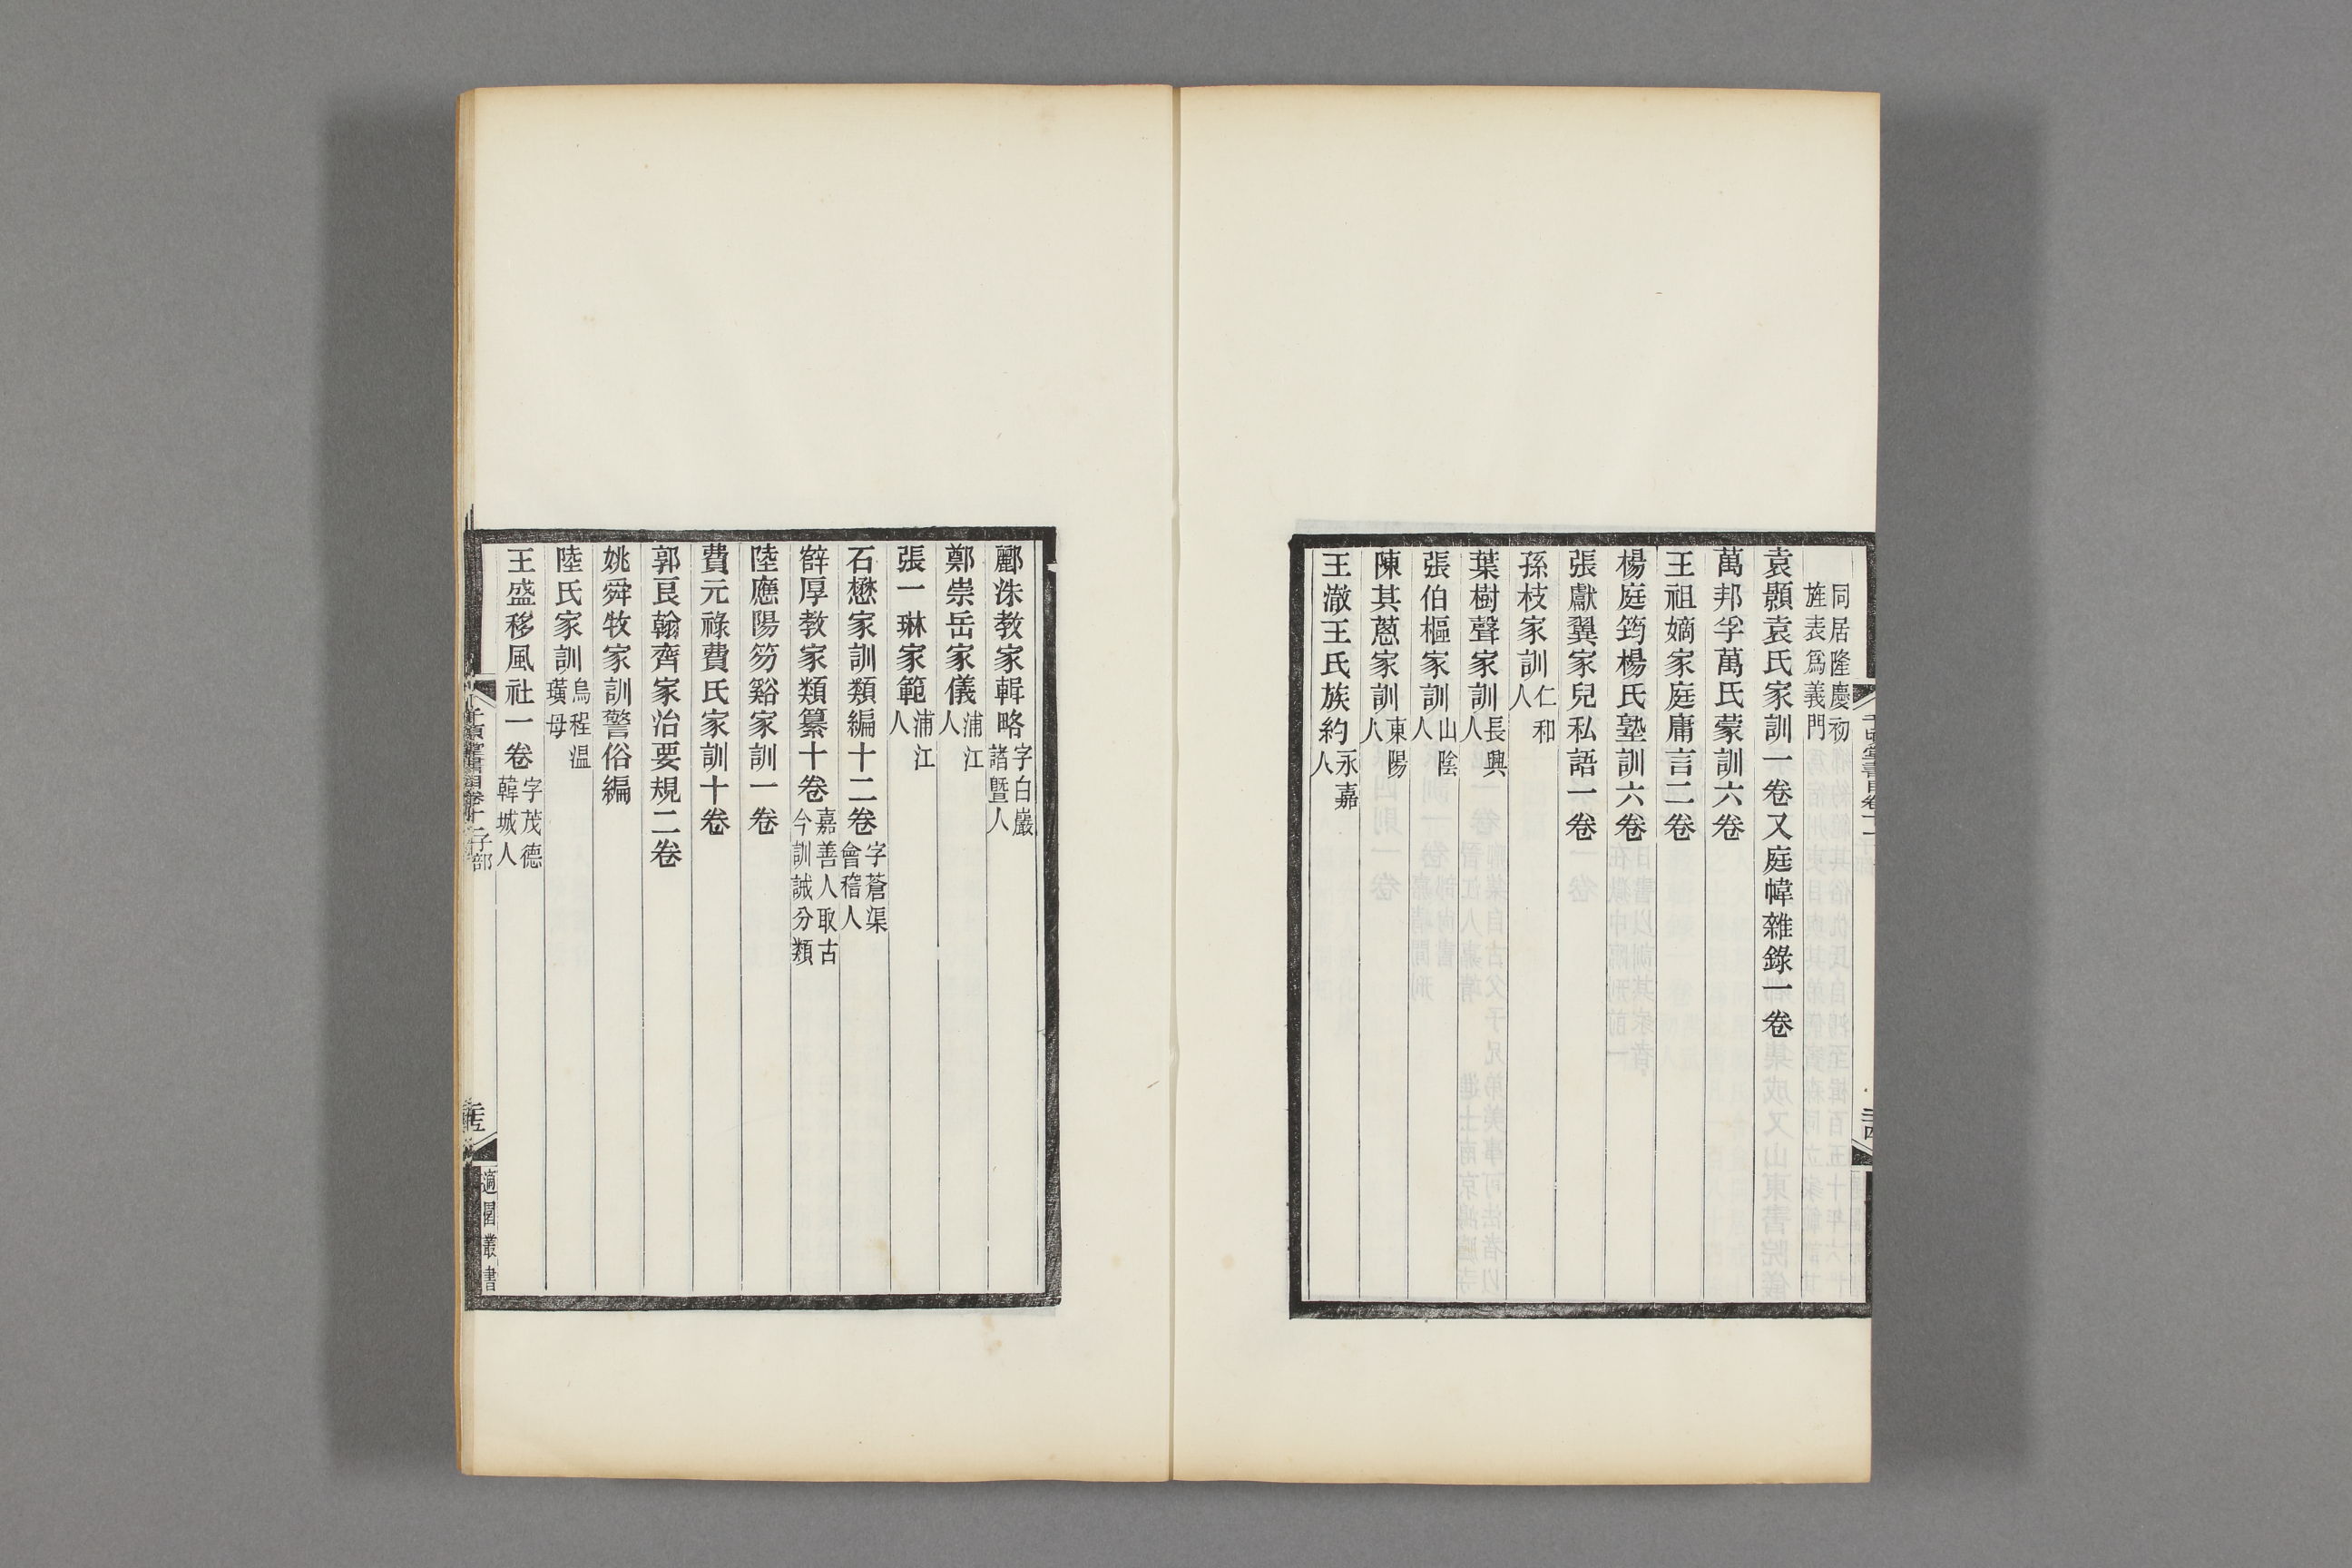 同居隆慶初
旌表爲義門
袁顥袁氏家訓一卷又庭幃雜錄一卷
萬邦孚萬氏蒙訓六卷
王祖嫡家庭庸言二卷
楊庭筠楊氏塾訓六卷
張獻翼家兒私語一卷
孫枝家訓仁和人
葉樹聲家訓長興人
張伯樞家訓山陰人
陳其蒽家訓東陽人
王澈王氏族約永嘉人
酈洙教家輯略字白巖諸暨人
鄭崇岳家儀浦江人
張一琳家範浦江人
石懋家訓類編十二卷字蒼渠會稽人
薛厚教家類纂十卷嘉善人取古今訓誡分類
陸應陽笏谿家訓一卷
費元祿費氏家訓十卷
郭良翰齊家治要規二卷
姚舜牧家訓警俗編
陸氏家訓烏程溫璜母
王盛移風社一卷字茂德韓城人
千頃堂書目卷十一子部
適園叢書